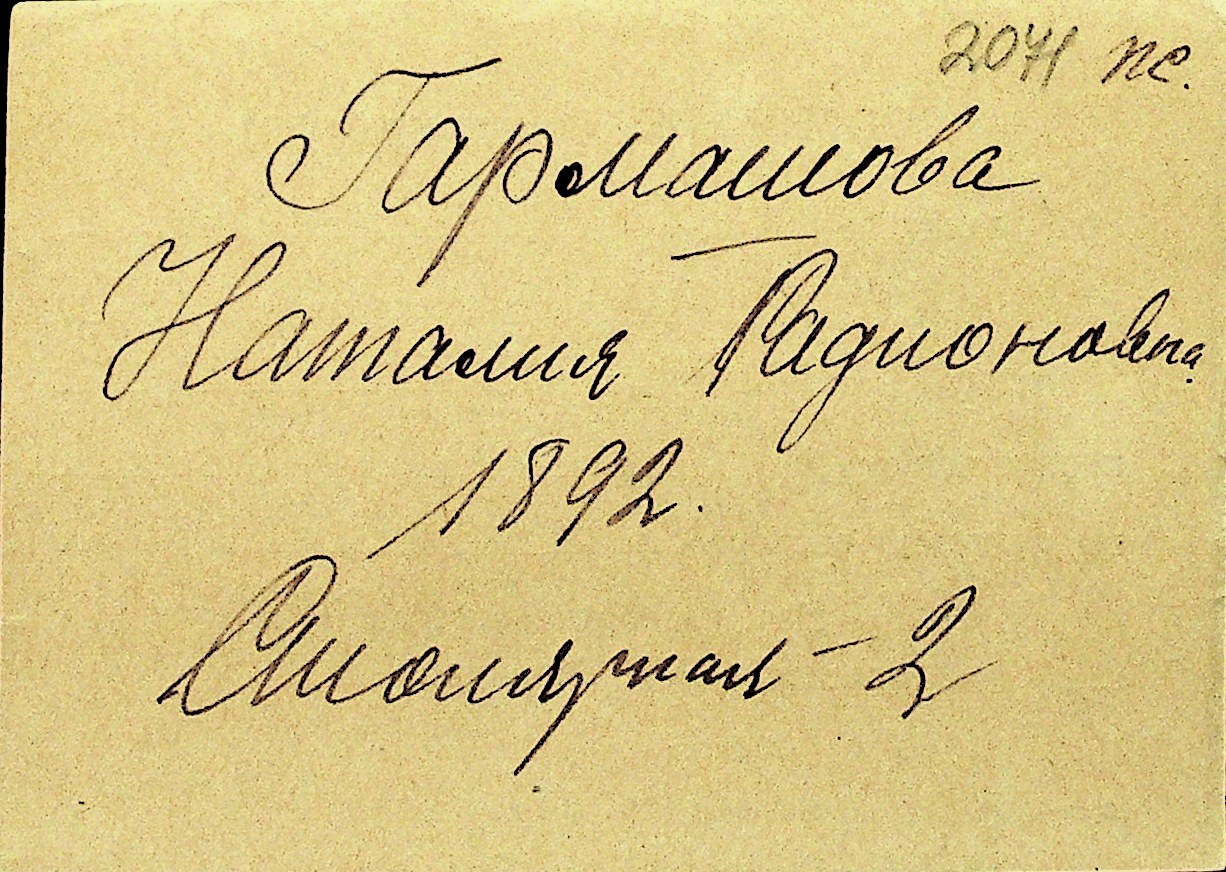 2071 пс.
Гармашова
Наталия Радионовна
1892.
Столярная - 2